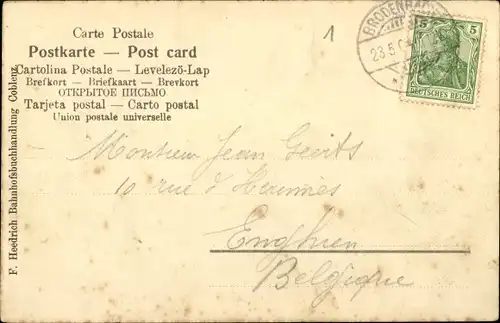 Carte Postale
Postkarte — Post card
Cartolina Postale — Levelezö-Lap
Brefkort — Briefkaart — Brevkort
ОТКРЫТОЕ ПИСЬМО
Tarjeta postal — Carto postal
Union postale universelle
1
BRODENBACH
23.5.0
5 5
DEUTSCHES REICH
Monsieur Jean Geerts
10 rue d'Hennuies
Enghien
Belgique
F. Heedrich Bahnhofsbuchhandlung Coblenz